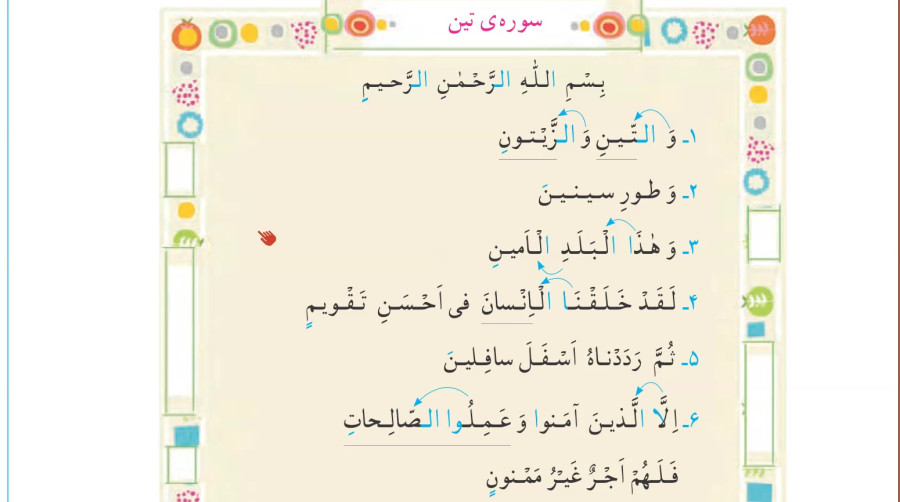 سوره‌ی تین
بِسْمِ اللّٰهِ الرَّحْمٰنِ الرَّحیمِ
۱ـ وَ التّینِ وَ الزَّیْتونِ
۲ـ وَ طورِ سینینَ
۳ـ وَ هٰذَا الْبَلَدِ الْاَمینِ
۴ـ لَقَدْ خَلَقْنَا الْاِنْسانَ فی اَحْسَنِ تَقْویمٍ
۵ـ ثُمَّ رَدَدْناهُ اَسْفَلَ سافِلینَ
۶ـ اِلَّا الَّذینَ آمَنوا وَ عَمِلُوا الصّالِحاتِ
فَلَهُمْ اَجْرٌ غَیْرُ مَمْنونٍ